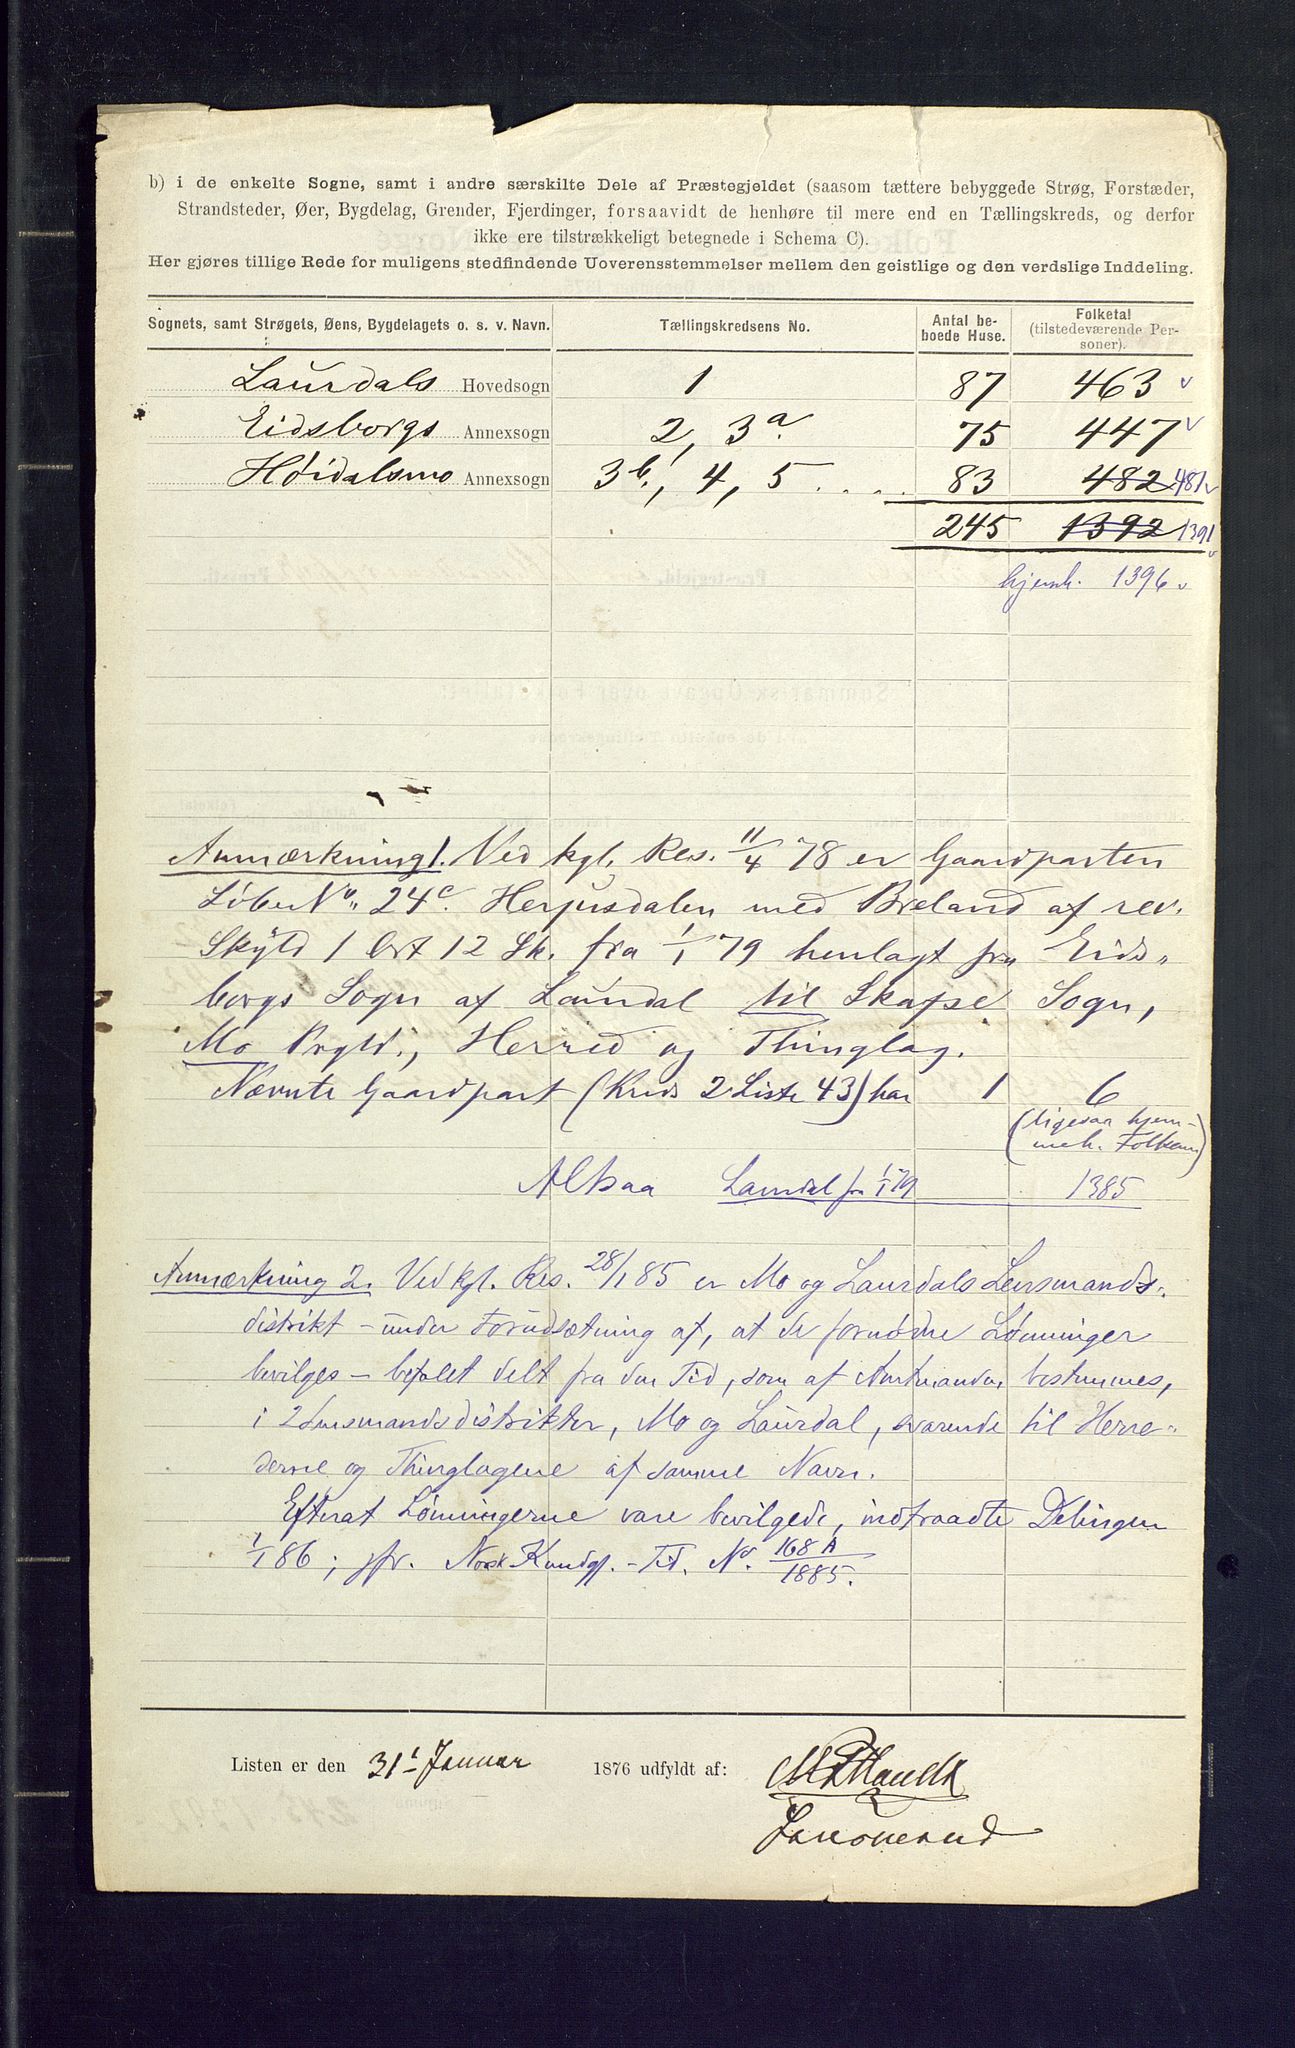 b) i de enkelte Sogne, samt i andre særskilte Dele af Præstegjeldet (saasom tættere bebyggede Strøg, Forstæder,
Strandsteder, Øer, Bygdelag, Grender, Fjerdinger, forsaavidt de henhøre til mere end en Tællingskreds, og derfor
ikke ere tilstrækkeligt betegnede i Schema C).
Her gjøres tillige Rede for muligens stedfindende Uoverensstemmelser mellem den geistlige og den verdslige Inddeling.
Sognets, samt Strøgets, Øens, Bygdelagets o. s. v. Navn. Tællingskredsens No. Antal beboede Huse. Folketal (tilstedeværende Personer).
Laurdals Hovedsogn 1 87 463 v
Eidsborgs Annexsogn 2, 3a. 75 447 v
Høidalsmo Annexsogn 3b., 4, 5 .... 83 482 481 v
245 1392 1391 v
hjemh. 1396 v
Anmærkning 1. Ved kgl. Res. 11/4 78 er Gaardparten
Løbe No. 24c. Herjusdalen med Breland af rev.
Skyld 1 Ort 12 Sk. fra 1/1 79 henlagt fra Eids-
borgs Sogn af Laurdal til Skafse Sogn,
Mo Prgld., Herred og Thinglag.
Nævnte Gaardpart (Kreds 2 Liste 43) har 1 6
(ligesaa hjem-
meh. Folkem)
Altsaa Laurdal fra 1/1 79 1385
Anmærkning 2. Ved kgl. Res. 28/1 85 er Mo og Laurdals Lensmands-
distrikt - under Forudsætning af, at de fornødne Lønninger
bevilges - befalet delt fra den Tid, som af Amtmanden bestemmes,
i 2 Lensmandsdistrikter, Mo og Laurdal, svarende til Herre-
derne og Thinglagene af samme Navn.
Efterat Lønningerne vare bevilgede, indtraadte Delingen
1/1 86; jfr. Norsk Kundgj.-Tid. No. 168 A/1885.
Listen er den 31te Januar 1876 udfyldt af: